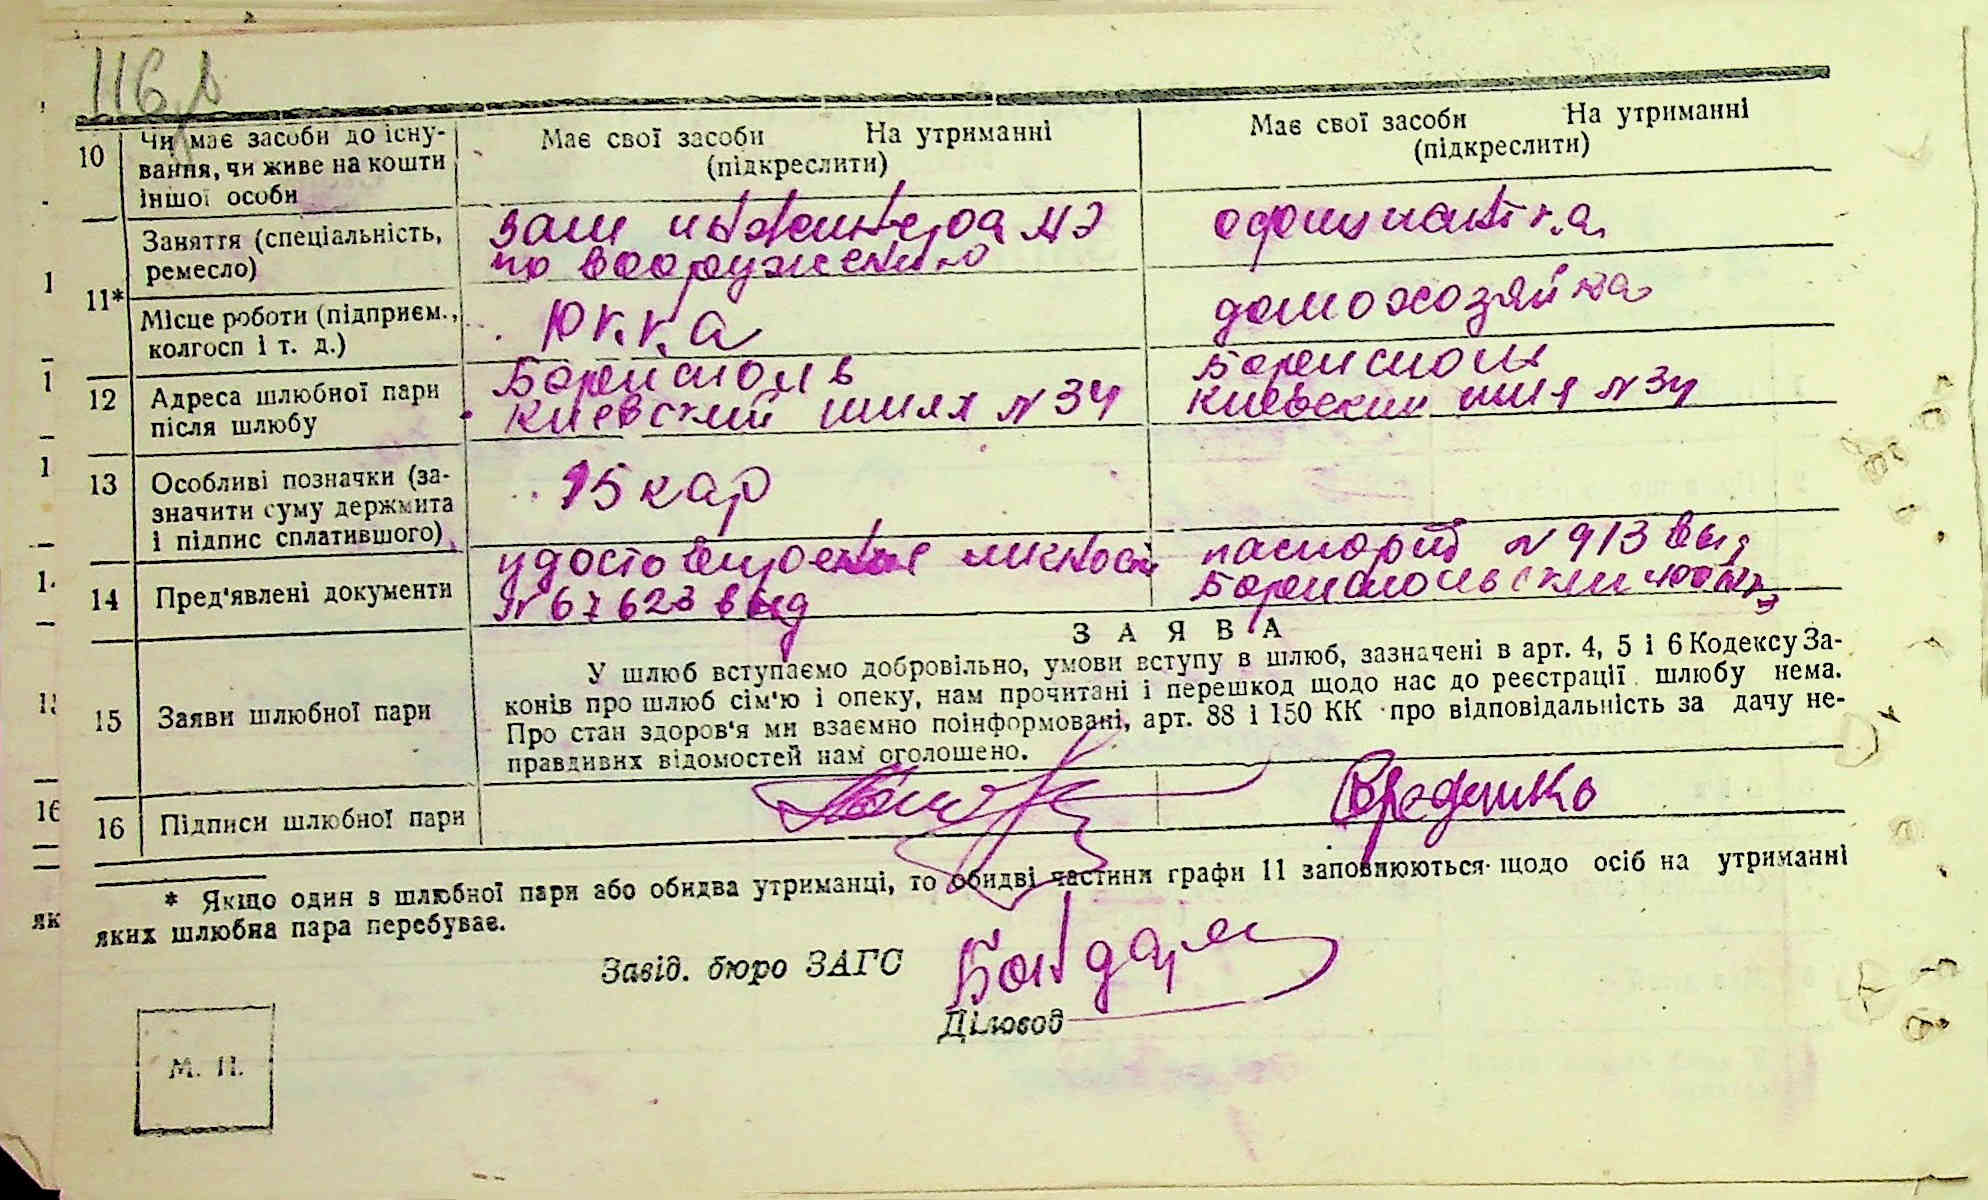 116
10 Чи має засоби до існу-
вання, чи живе на кошти
іншої особи
Має свої засоби На утриманні
(підкреслити)
Має свої засоби На утриманні
(підкреслити)
11* Заняття (спеціальність,
ремесло)
зам инженера
по вооружению
официантка
Місце роботи (підприєм.,
колгосп і т. д.)
Р.к.к.а
домохозяйка
12 Адреса шлюбної пари
після шлюбу
Бориспол в
Киевский шлях № 34
Борисполь
Киевский шлях № 34
13 Особливі позначки (за-
значити суму держмита
і підпис сплатившого)
15 кар
14 Пред'явлені документи
удостоверение личности
№ 67623 выд
паспорт № 913 выд
Бориспольским
15 Заяви шлюбної пари
ЗАЯВА
У шлюб вступаємо добровільно, умови вступу в шлюб, зазначені в арт. 4, 5 і 6 Кодексу За-
конів про шлюб сім'ю і опеку, нам прочитані і перешкод щодо нас до реєстрації шлюбу нема.
Про стан здоров'я ми взаємно поінформовані, арт. 88 і 150 КК про відповідальність за дачу не-
правдивих відомостей нам оголошено.
16 Підписи шлюбної пари
* Якщо один з шлюбної пари або обидва утриманці, то обидві частини графи 11 заповнюються щодо осіб на утриманні
яких шлюбна пара перебуває.
Завід. бюро ЗАГС
Діловод
М. П.